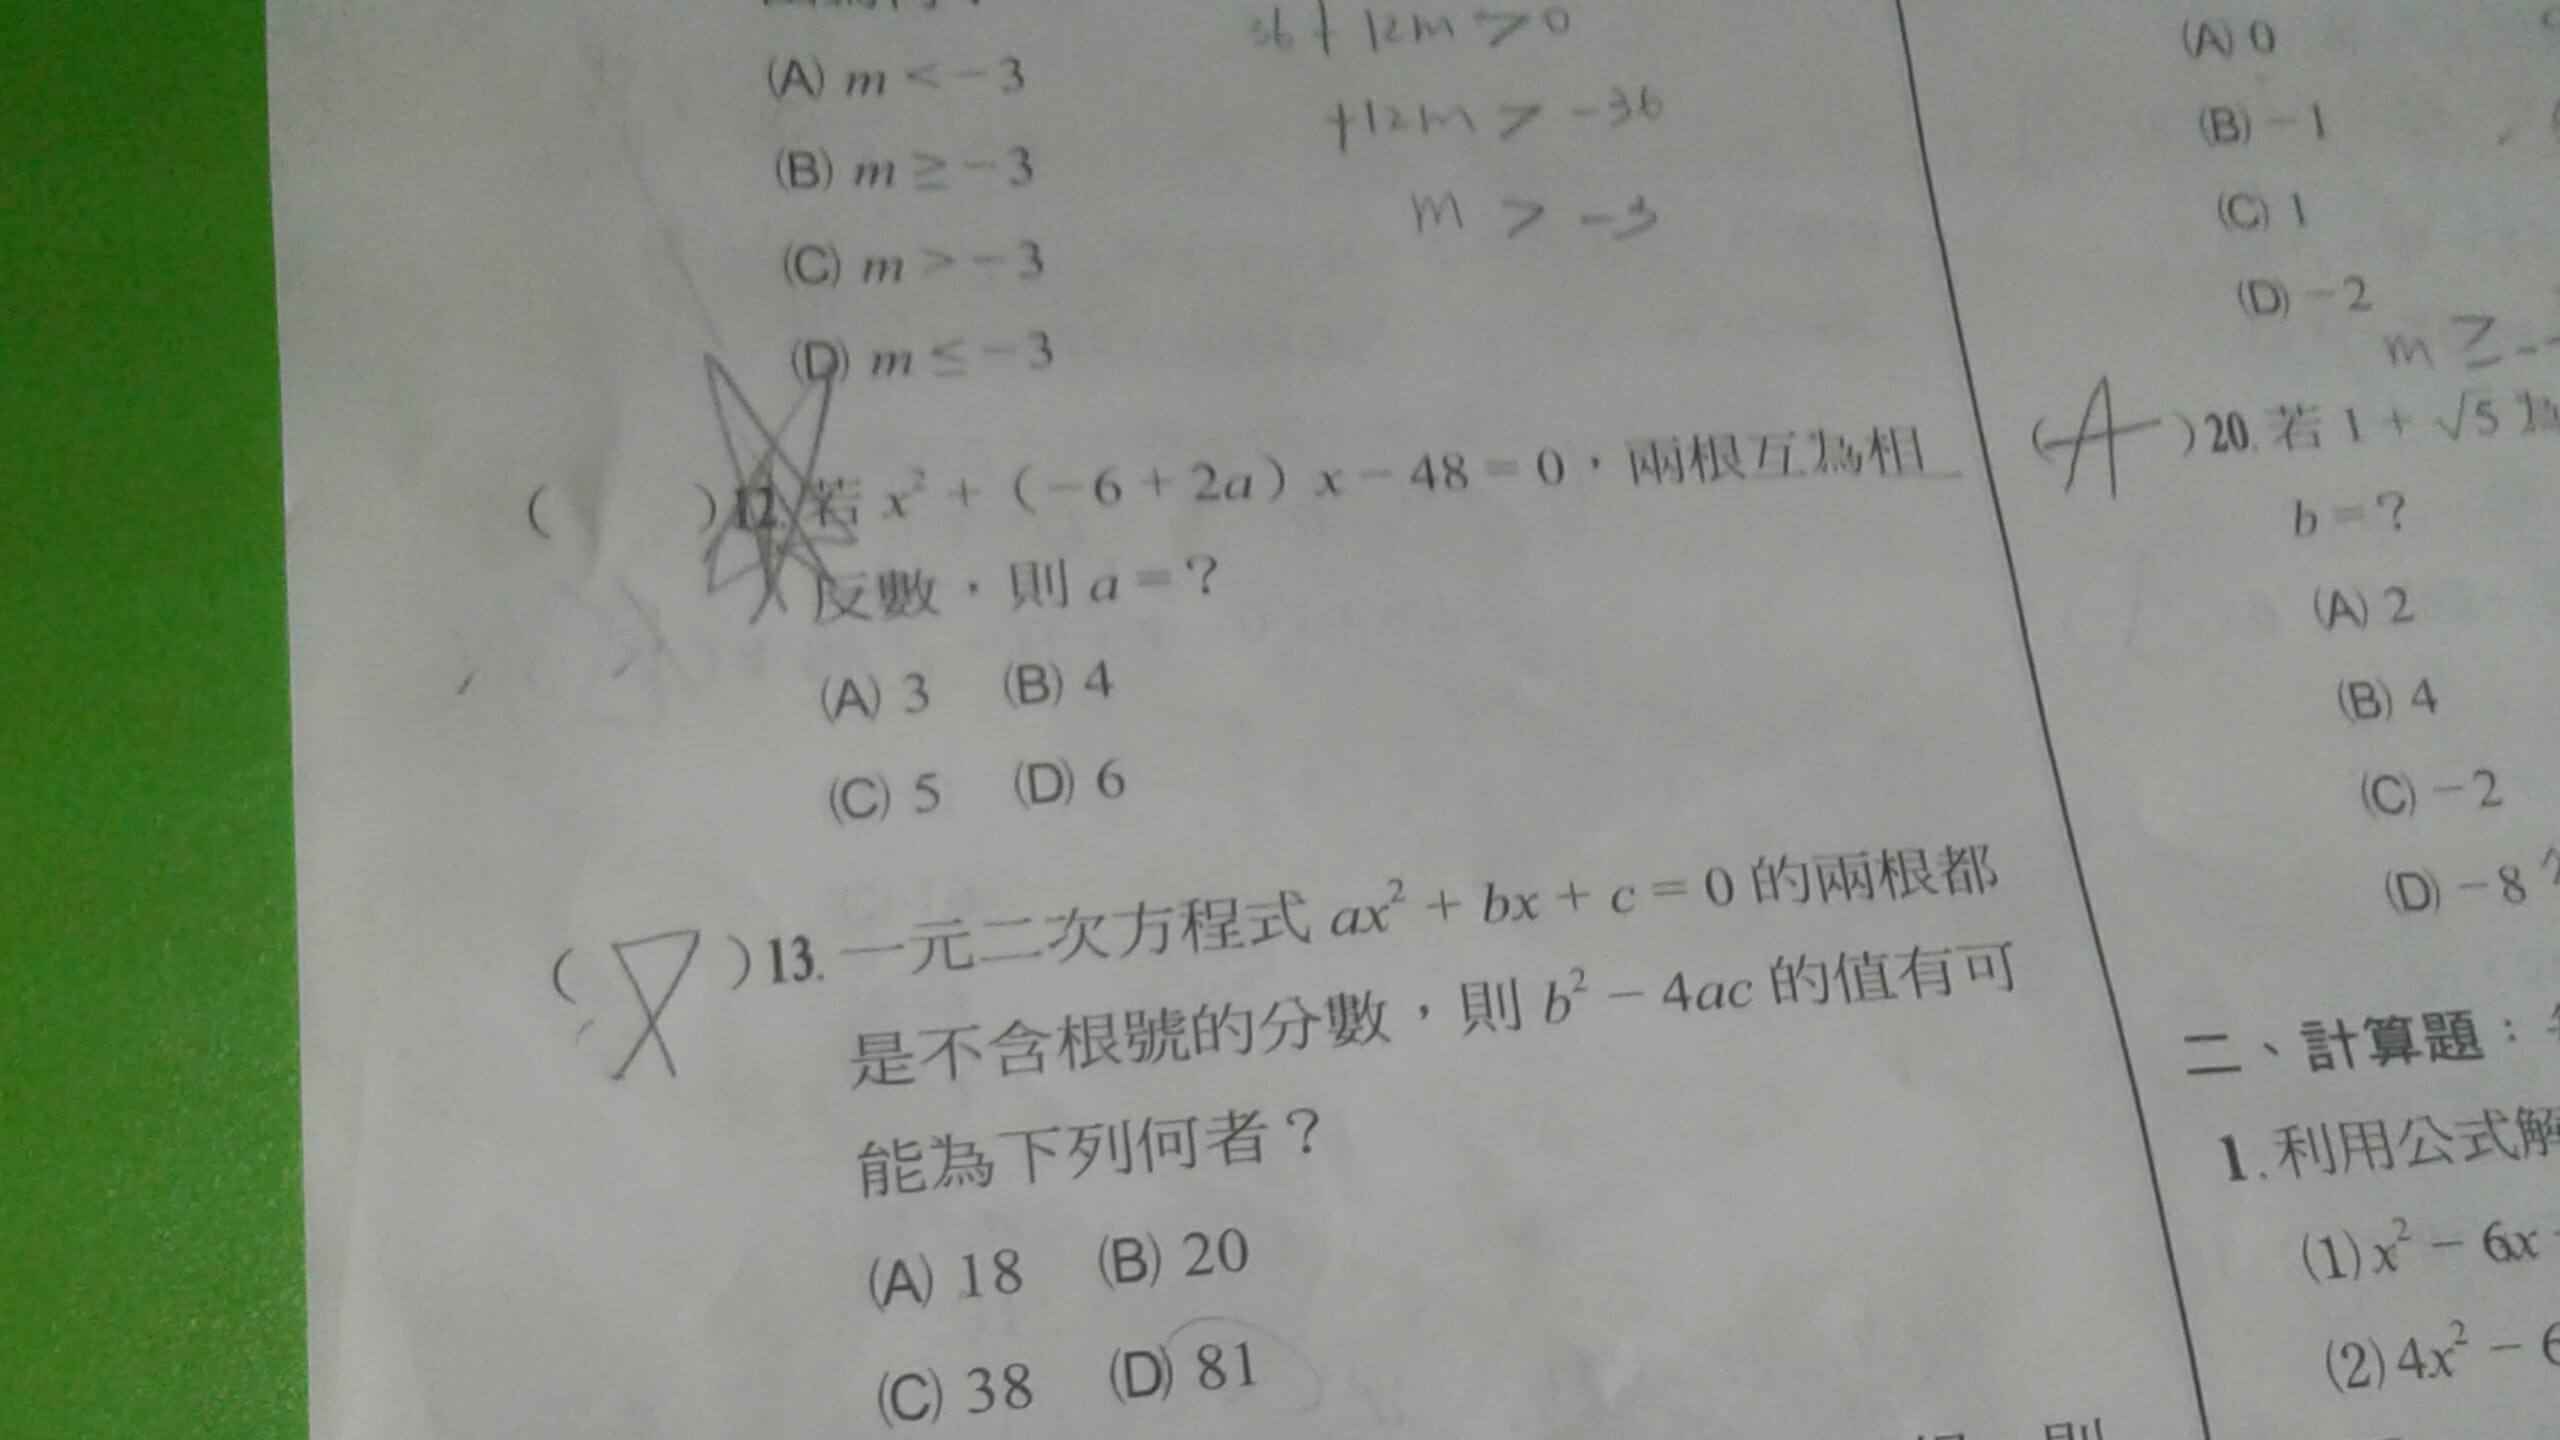 36 + 12m > 0
(A) m < -3
+12m > -36
(B) m ≥ -3
m > -3
(C) m > -3
(D) m ≤ -3
( )12. 若 x² + (-6 + 2a) x - 48 = 0，兩根互為相
反數，則 a = ?
(A) 3 (B) 4
(C) 5 (D) 6
( )13. 一元二次方程式 ax² + bx + c = 0 的兩根都
是不含根號的分數，則 b² - 4ac 的值有可
能為下列何者？
(A) 18 (B) 20
(C) 38 (D) 81
(A) 0
(B) -1
(C) 1
(D) -2
m ≥ -
(A)20. 若 1 + √5 為
b = ?
(A) 2
(B) 4
(C) -2
(D) -8
二、計算題：
1. 利用公式解
(1) x² - 6x
(2) 4x² - 6